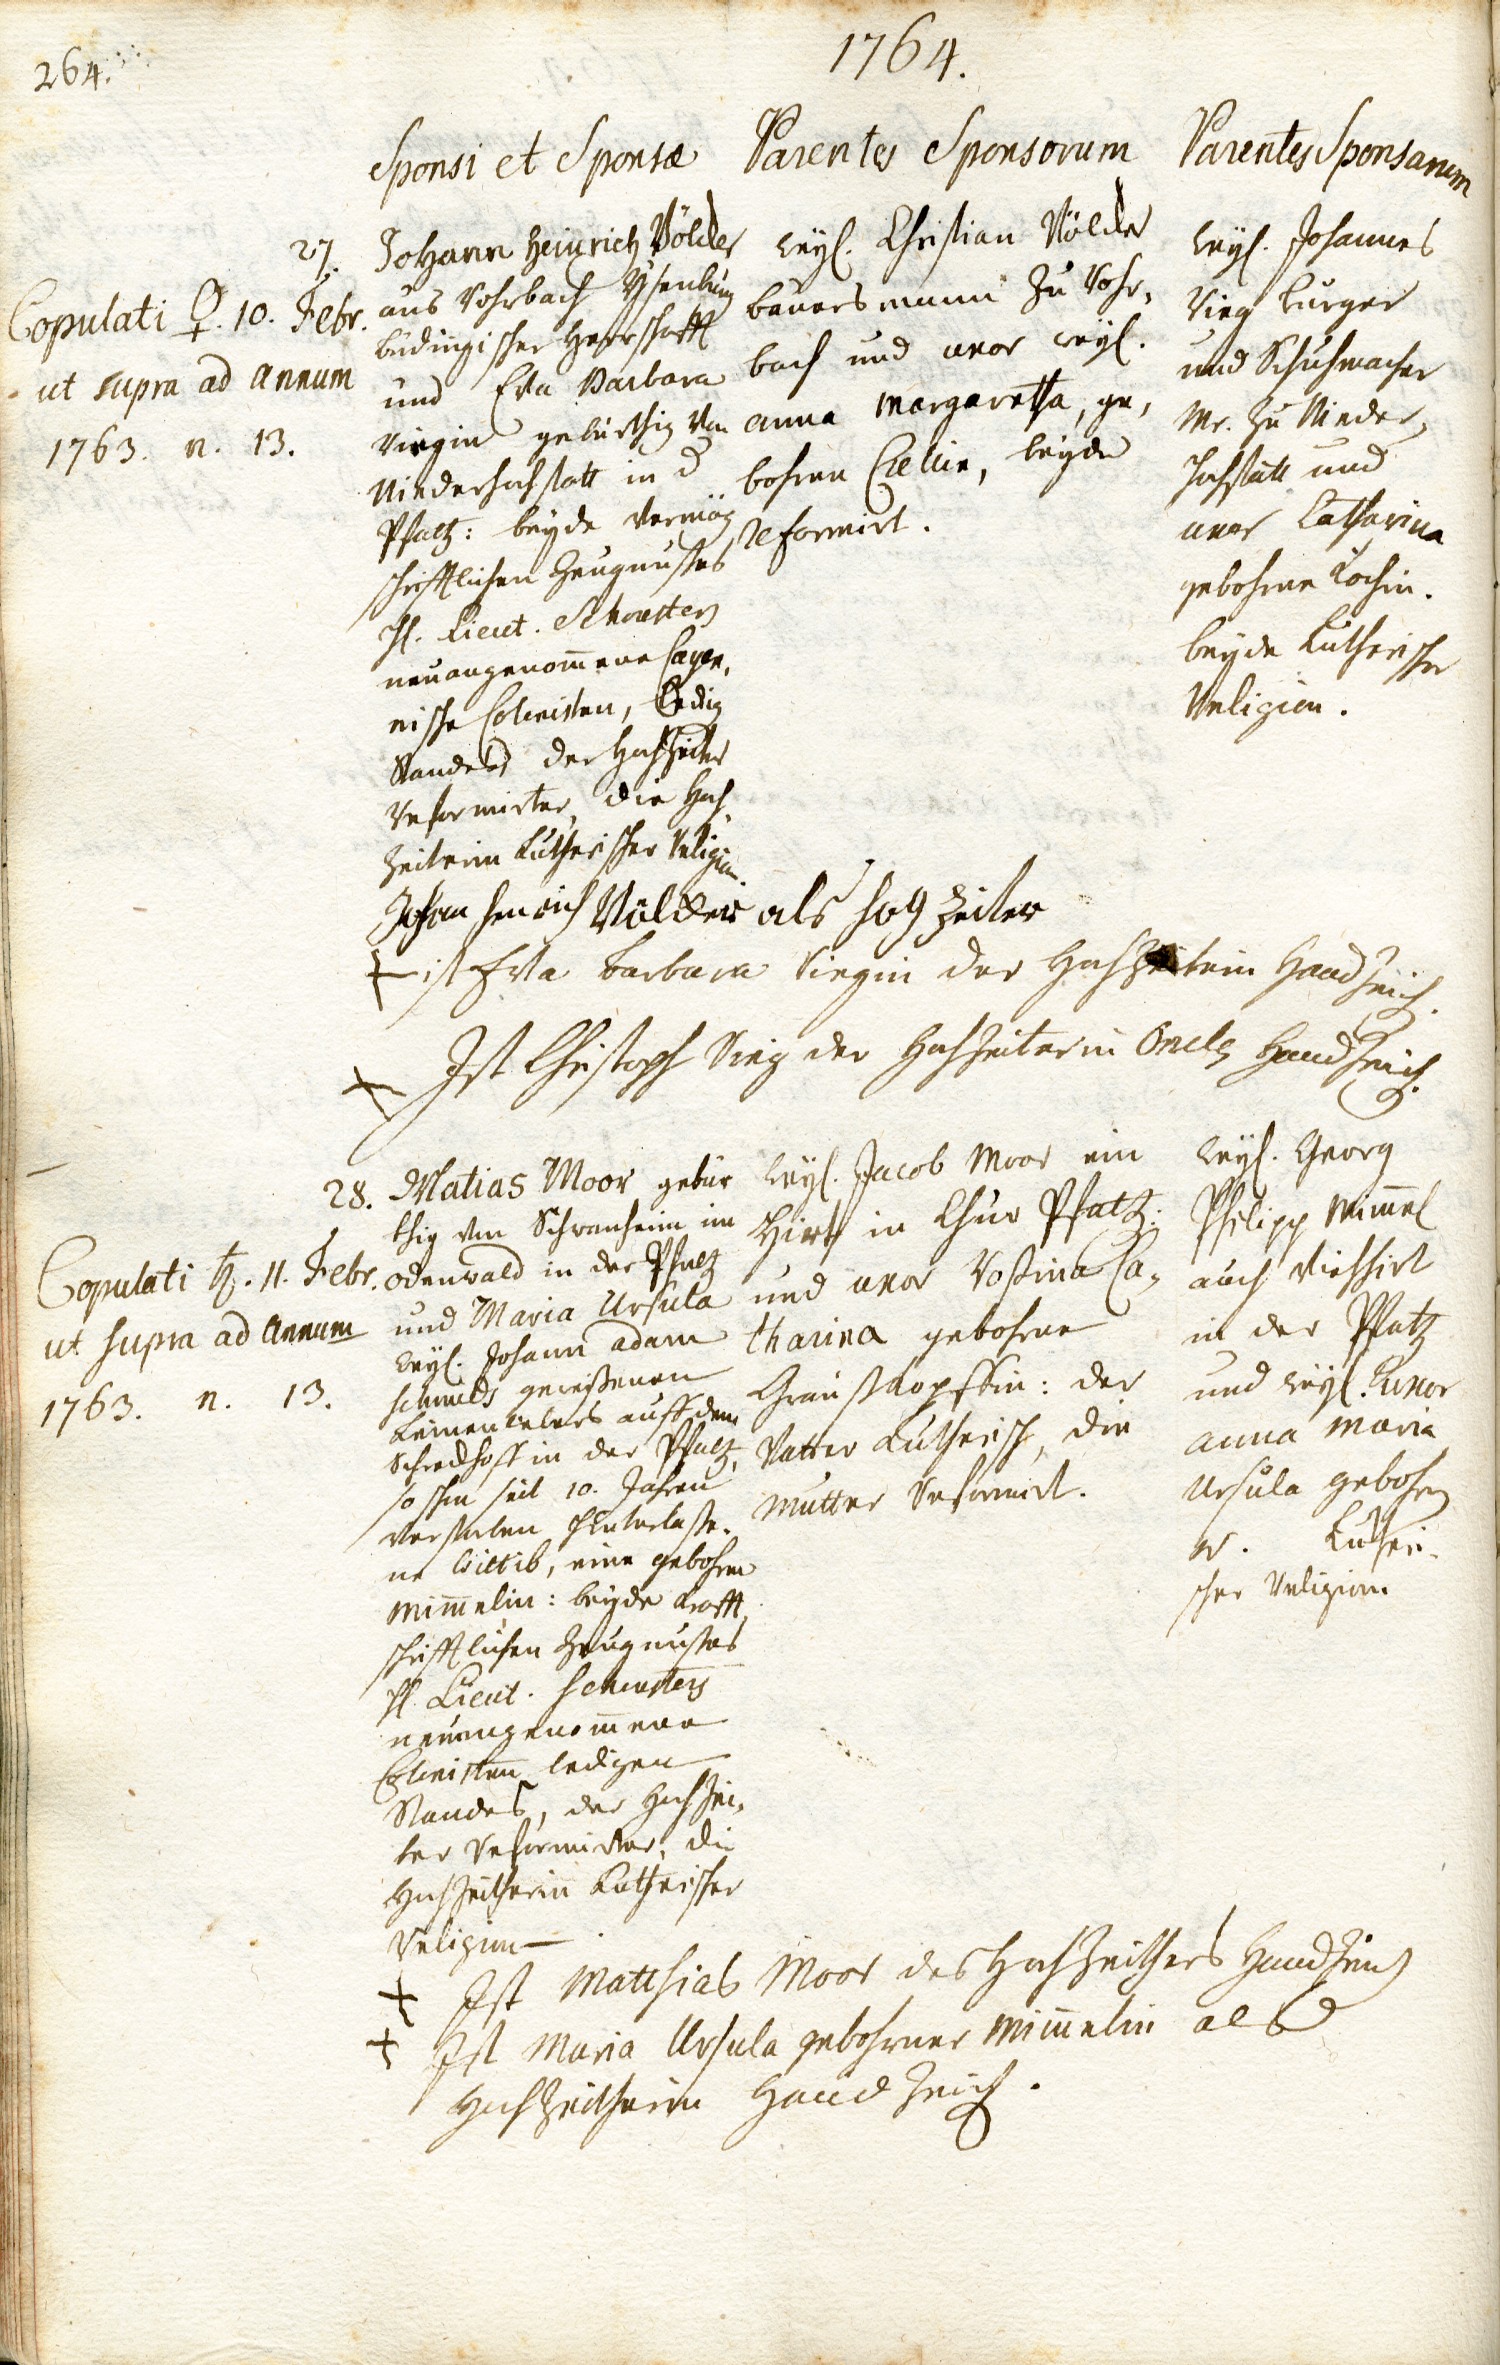 264.
1764.
Sponsi et Sponsæ
Parentes Sponsorum
Parentes Sponsarum
27.
Copulati ♀. 10. Febr.
ut supra ad annum
1763. n. 13.
Johann Heinrich Völder
aus Vohrbach Ysenburg
büdingischer Herrschafft
und Eva Barbara
gebürthig von
Niederhochstatt in d
Pfaltz: beyde vermög
schrifftlichen Zeugnußes
H. Lieut.
neuangenom̄ene Cayen,
nische Colonisten, Ledig
Standes der Hochzeiter
Reformirter, die Hoch,
zeiterin Lutherischer Religion.
weyl. Christian Völder
bauersmann zu Vohr,
bach und uxor weyl.
anna Margaretha, ge,
bohrne beyde
Reformirt.
weyl. Johannes
burger
und Schuhmacher
Mr. zu Nieder,
hochstatt und
uxor Catharina
gebohrne Kochin.
beyde Lutherischer
Religion.
Johan Henrich Völder als hochzeiter
+ ist Eva Barbara der Hochzeiterin Handzeich.
+ Ist Christoph der Hochzeiterin Oncle Handzeich.
28.
Copulati ♄. 11. Febr.
ut supra ad annum
1763. n. 13.
Matias Moor gebür
thig von Schwanheim im
odenwald in der Pfaltz
und Maria Ursula
weyl. Johann adam
Schmids geweßenen
Leinenwebers auff dem
in der Pfaltz,
so schon seit 10. Jahren
verstorben hinterlaße,
ne Wittib, eine gebohrne
Mim̄elin: beyde krafft
schrifftlichen Zeugnußes
H. Lieut.
neuangenom̄ene
Colonisten ledigen
Standes, der Hochzei,
ter Reformirter, die
Hochzeitherin Lutherischer
Religion
weyl. Jacob Moor ein
Hirt in Chur Pfaltz:
und uxor Roßina Ca,
tharina gebohrne
der
Vatter Lutherisch, die
Mutter Reformirt.
weyl. Georg
Philipp Mim̄el
auch Viehhirt
in der Pfaltz
und weyl. Uxor
anna Maria
Ursula gebohrne
N. Lutheri-
scher Religion
+ Ist Matthias Moor des Hochzeithers Handzeich
+ Ist Maria Ursula gebohrner Mim̄elin als
Hochzeitherin Handzeich.